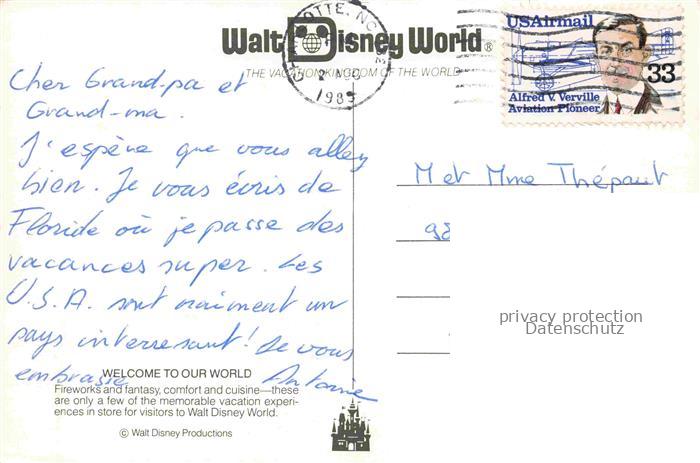 Walt Disney World®
THE VACATION KINGDOM OF THE WORLD
OTTE, NC
1985
USAirmail
33
Alfred V. Verville
Aviation Pioneer
Cher Grand-pa et
Grand-ma.
J'espère que vous allez
bien. Je vous écris de
Floride où je passe des
vacances super. Les
U.S.A. sont vraiment un
pays interressant! Je vous
embrasse Antoine
M et Mme Thépaut
92
privacy protection
Datenschutz
WELCOME TO OUR WORLD
Fireworks and fantasy, comfort and cuisine—these
are only a few of the memorable vacation experi-
ences in store for visitors to Walt Disney World.
© Walt Disney Productions